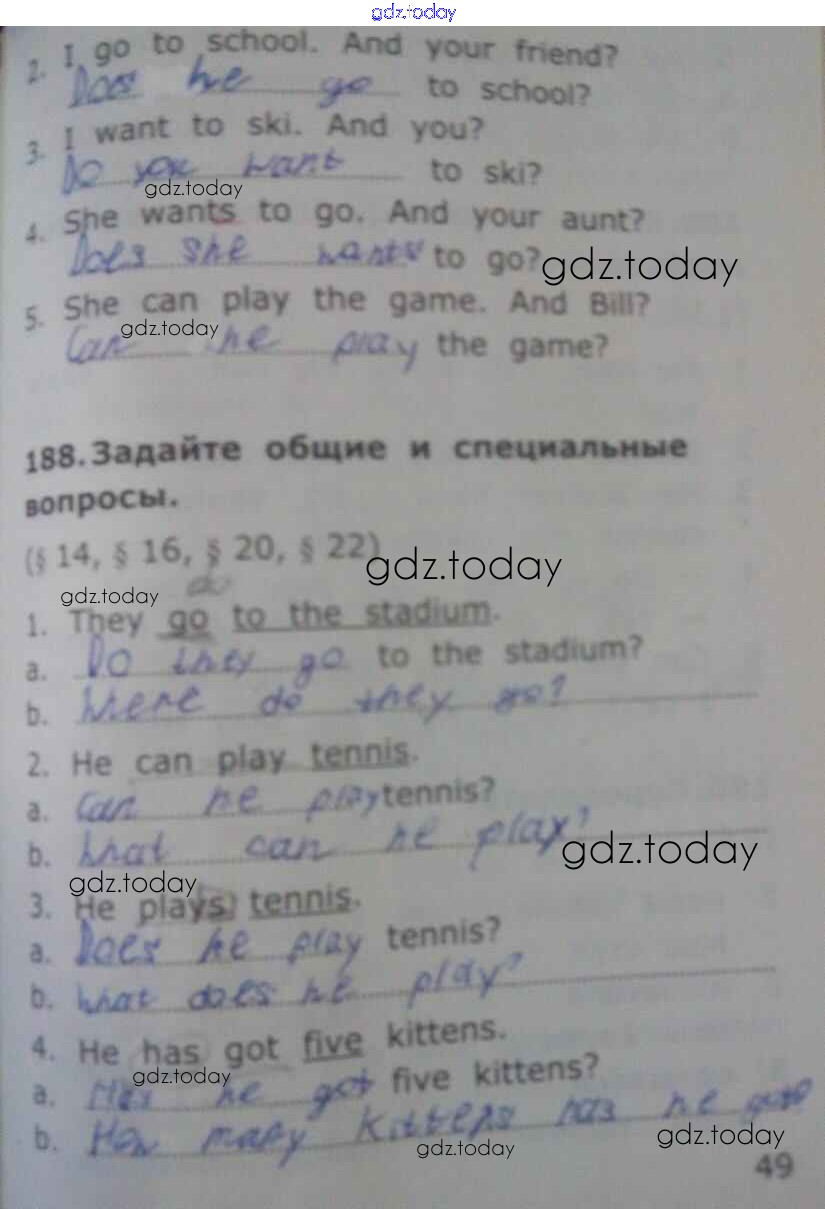 gdz.today
2. I go to school. And your friend?
Does he go to school?
3. I want to ski. And you?
Do you want to ski?
gdz.today
4. She wants to go. And your aunt?
Does she wants to go?
gdz.today
5. She can play the game. And Bill?
gdz.today
Can he play the game?
188. Задайте общие и специальные
вопросы.
(§ 14, § 16, § 20, § 22)
gdz.today
do
gdz.today
1. They go to the stadium.
a. Do they go to the stadium?
b. Where do they go?
2. He can play tennis.
a. Can he play tennis?
b. What can he play?
gdz.today
gdz.today
3. He plays tennis.
a. Does he play tennis?
b. What does he play?
4. He has got five kittens.
gdz.today
a. Has he got five kittens?
b. How many kittens has he got?
gdz.today
gdz.today
49